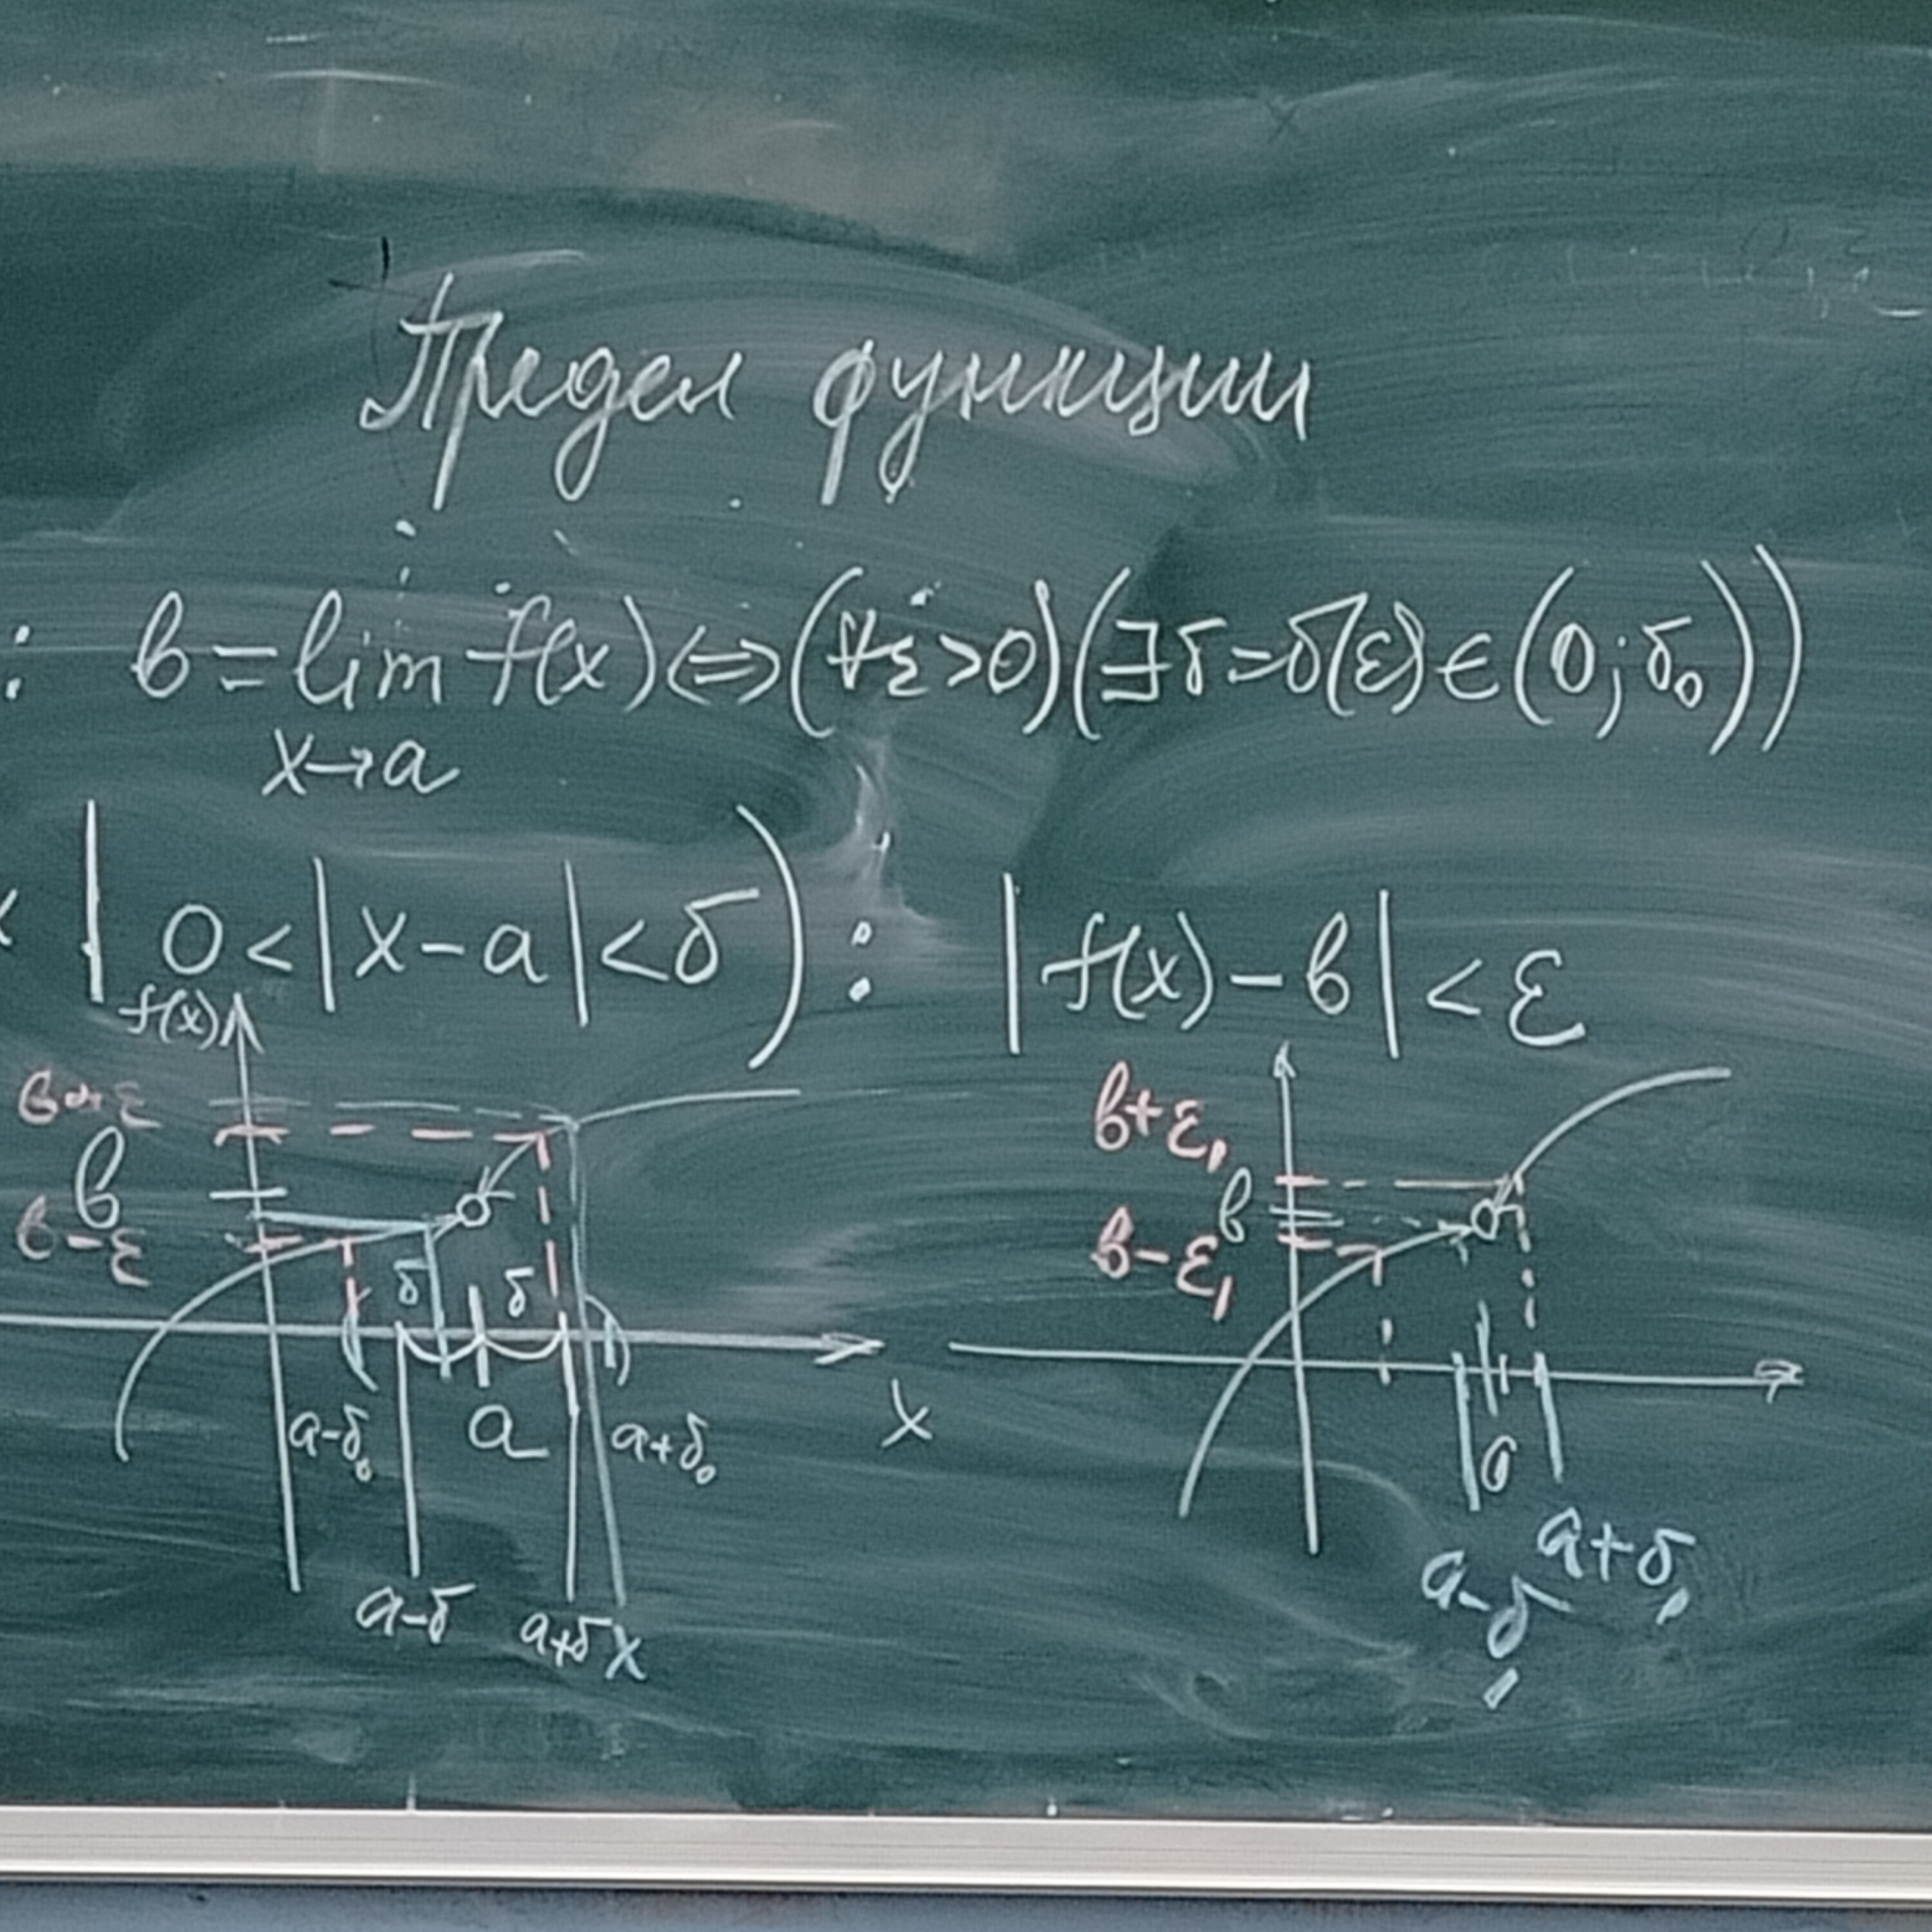 Предел функции
: в = lim f(x) ⇔ (∀ε > 0)(∃δ = δ(ε) ∈ (0; δ₀))
x→a
x | 0 < |x - a| < δ) : |f(x) - в| < ε
f(x)
в+ε
в
в-ε
δ δ
a-δ₀ a a+δ₀ x
a-δ a+δ x
в+ε₁
в
в-ε₁
a
a-δ₁ a+δ₁